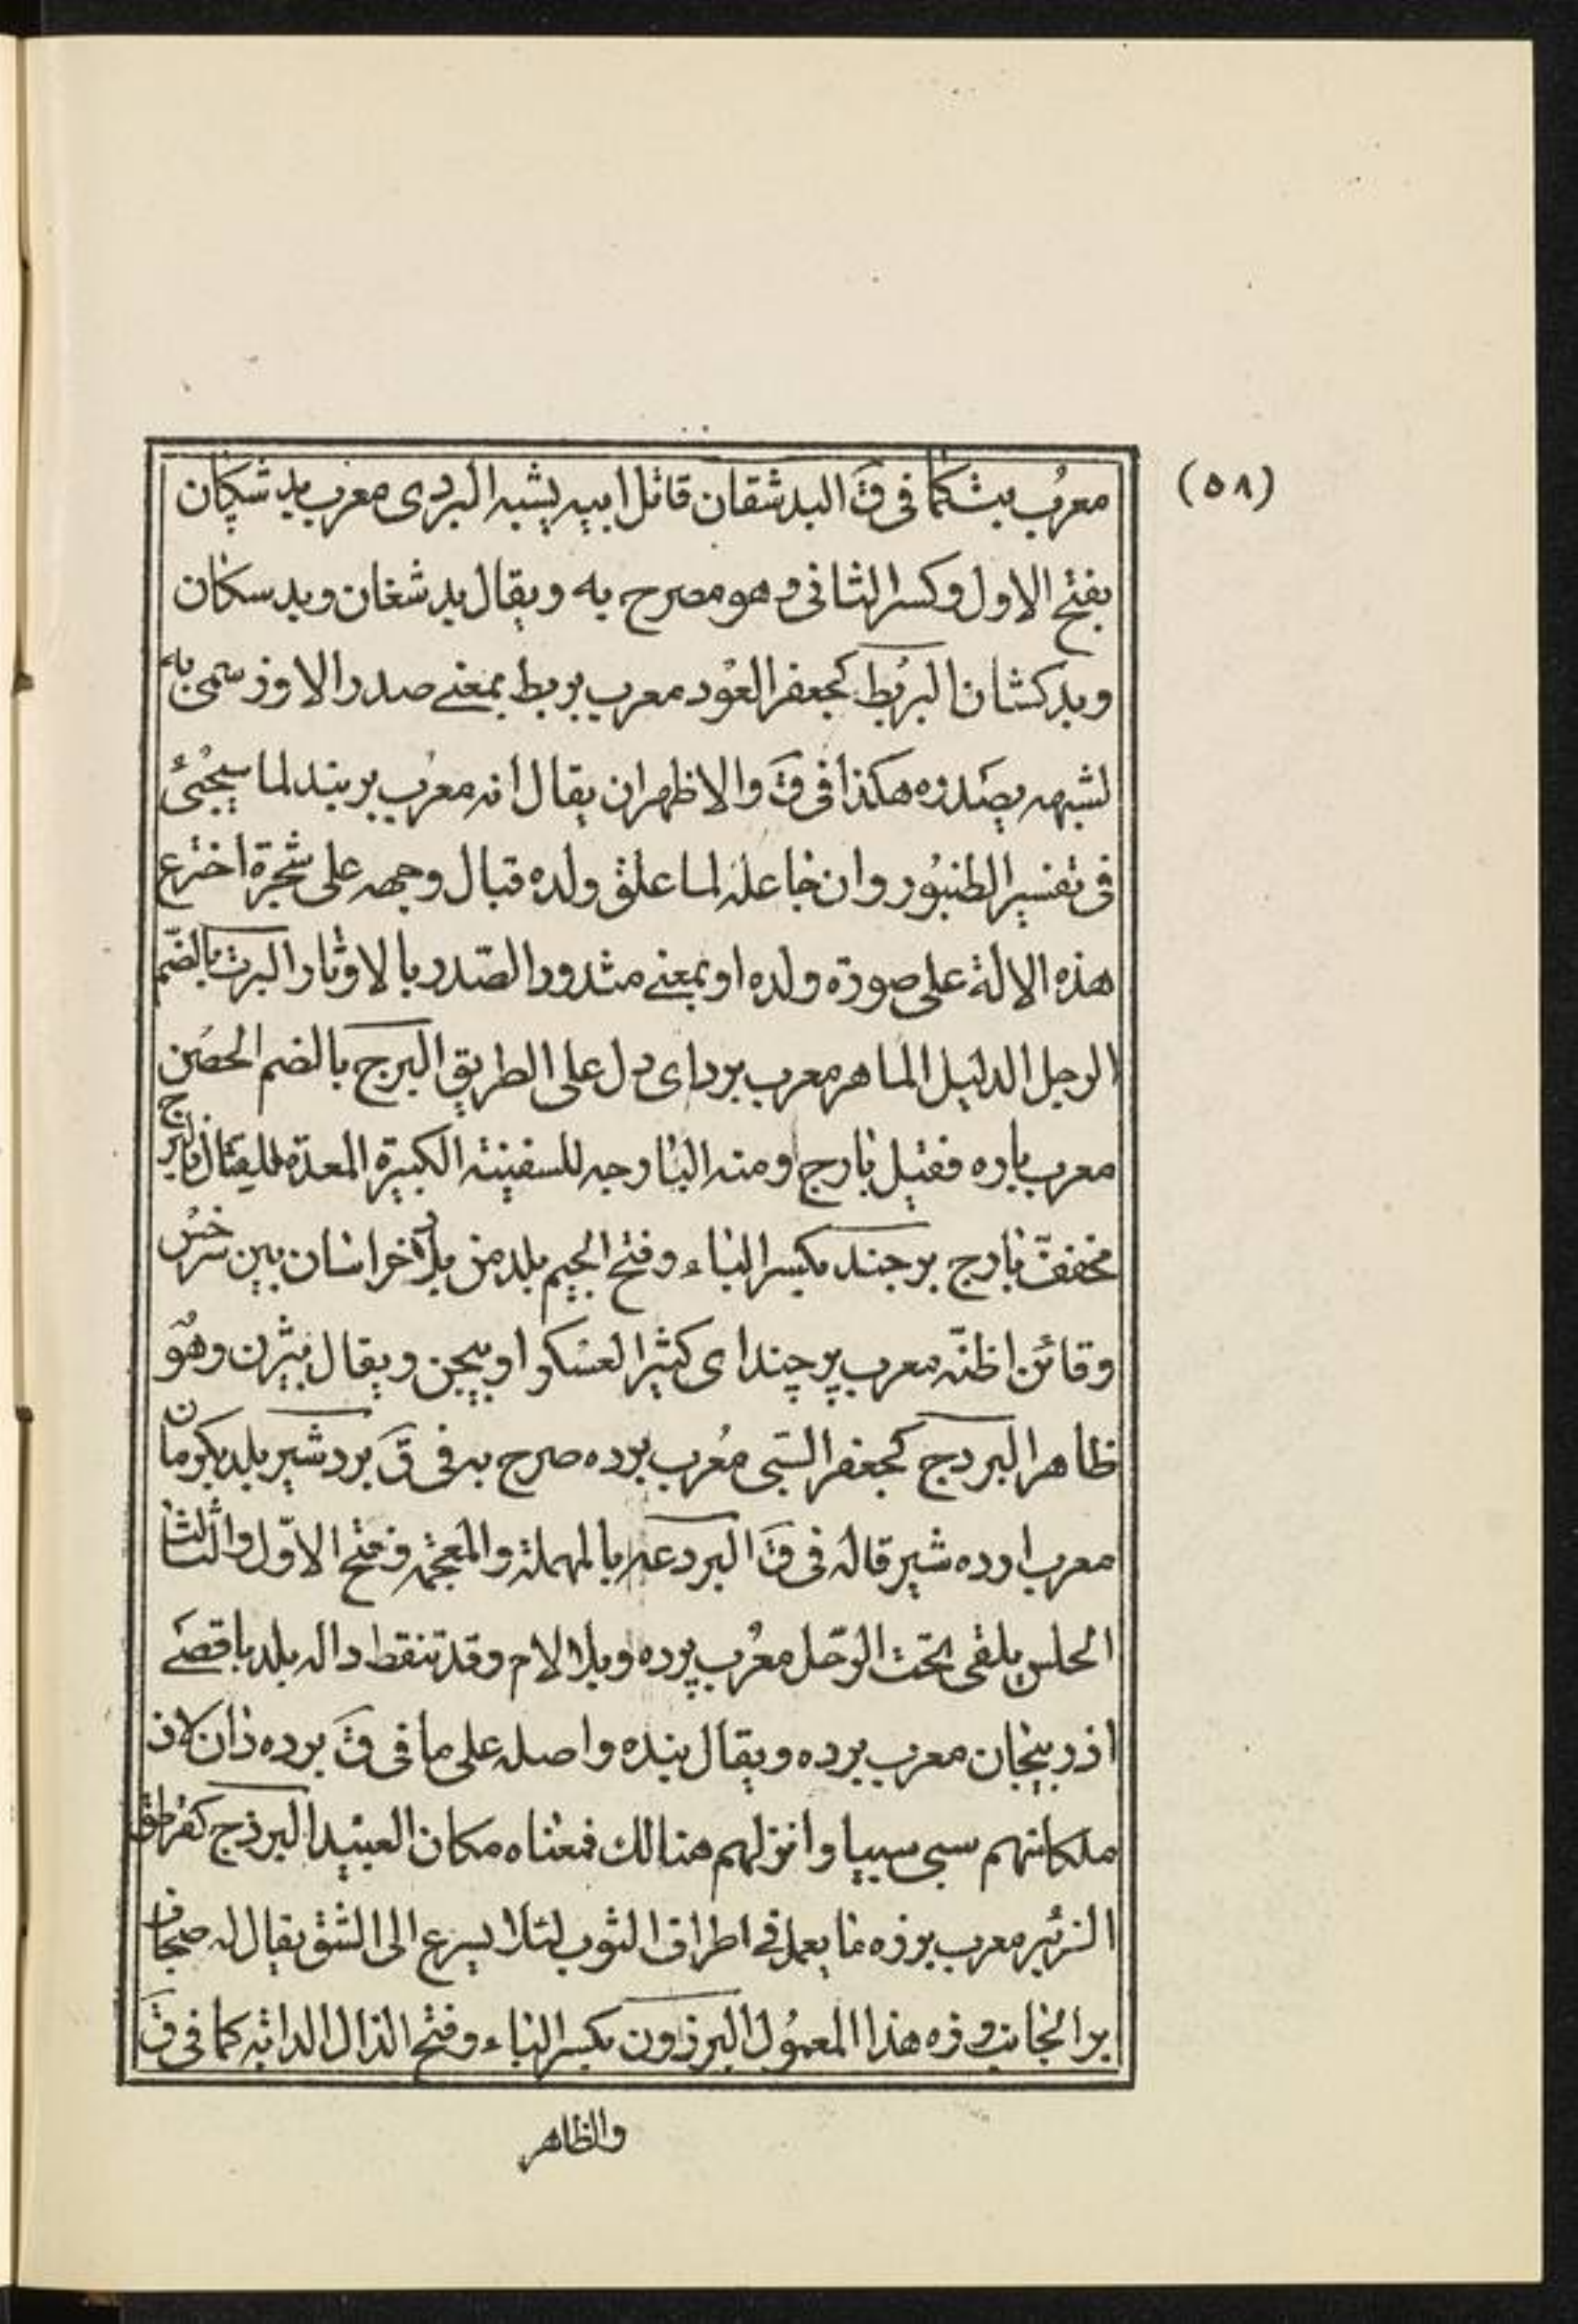 (٥٨)
معرب بت كما في ق البدشقان قاتل ابيه يشبه البردى معرب بدشكان
بفتح الاول وكسر الثانى وهو مصرح به ويقال بدشغان وبدسكان
وبدكشان البربط كجعفر العود معرب بربط بمعنى صدر الاوز سمى به
لشبهه بصدره هكذا فى ق والاظهر ان يقال انه معرب بربند لما سيجئ
فى تفسير الطنبور وان جاعله لما علق ولده قبال وجهه على شجرة اخترع
هذه الالة على صورة ولده او بمعنى مشدود الصدر بالاوتار البرت بالضم
الرجل الدليل الماهر معرب برد اى دل على الطريق البرج بالضم الحصن
معرب باره فقيل بارج ومنه البارجه للسفينة الكبيرة المعدة للقتال فالبرج
مخفف بارج برجند بكسر الباء وفتح الجيم بلد من بلاد خراسان بين سرخس
وقائن اظنه معرب پرچند اى كثير العسكر او بيجن ويقال بيژن وهو
ظاهر البردج كجعفر السبى معرب برده صرح به فى ق بردشير بلد بكرمان
معرب ارده شير قاله فى ق البردعه بالمهملة والمعجمه وفتح الاول والثالث
الحلس يلقى تحت الرحل معرب پرده وبلا لام وقد تنقط داله بلد باقصى
اذربيجان معرب برده ويقال بنده واصله على ما فى ق برده دان لان
ملكا منهم سبى سبيا وانزلهم هنالك فمعناه مكان العبيد البرزج كقرطق
الزئبر معرب برزه ما يعمل فى اطراف الثوب لئلا يسرع الى الشق يقال له
بر الجانب وزه هذا المعمول البرذون بكسر الباء وفتح الذال الدابه كما فى ق
والظاهر